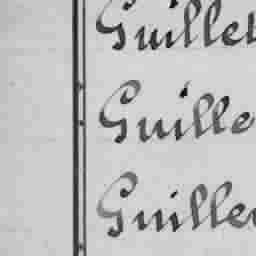 Guillet
Guille
Guille